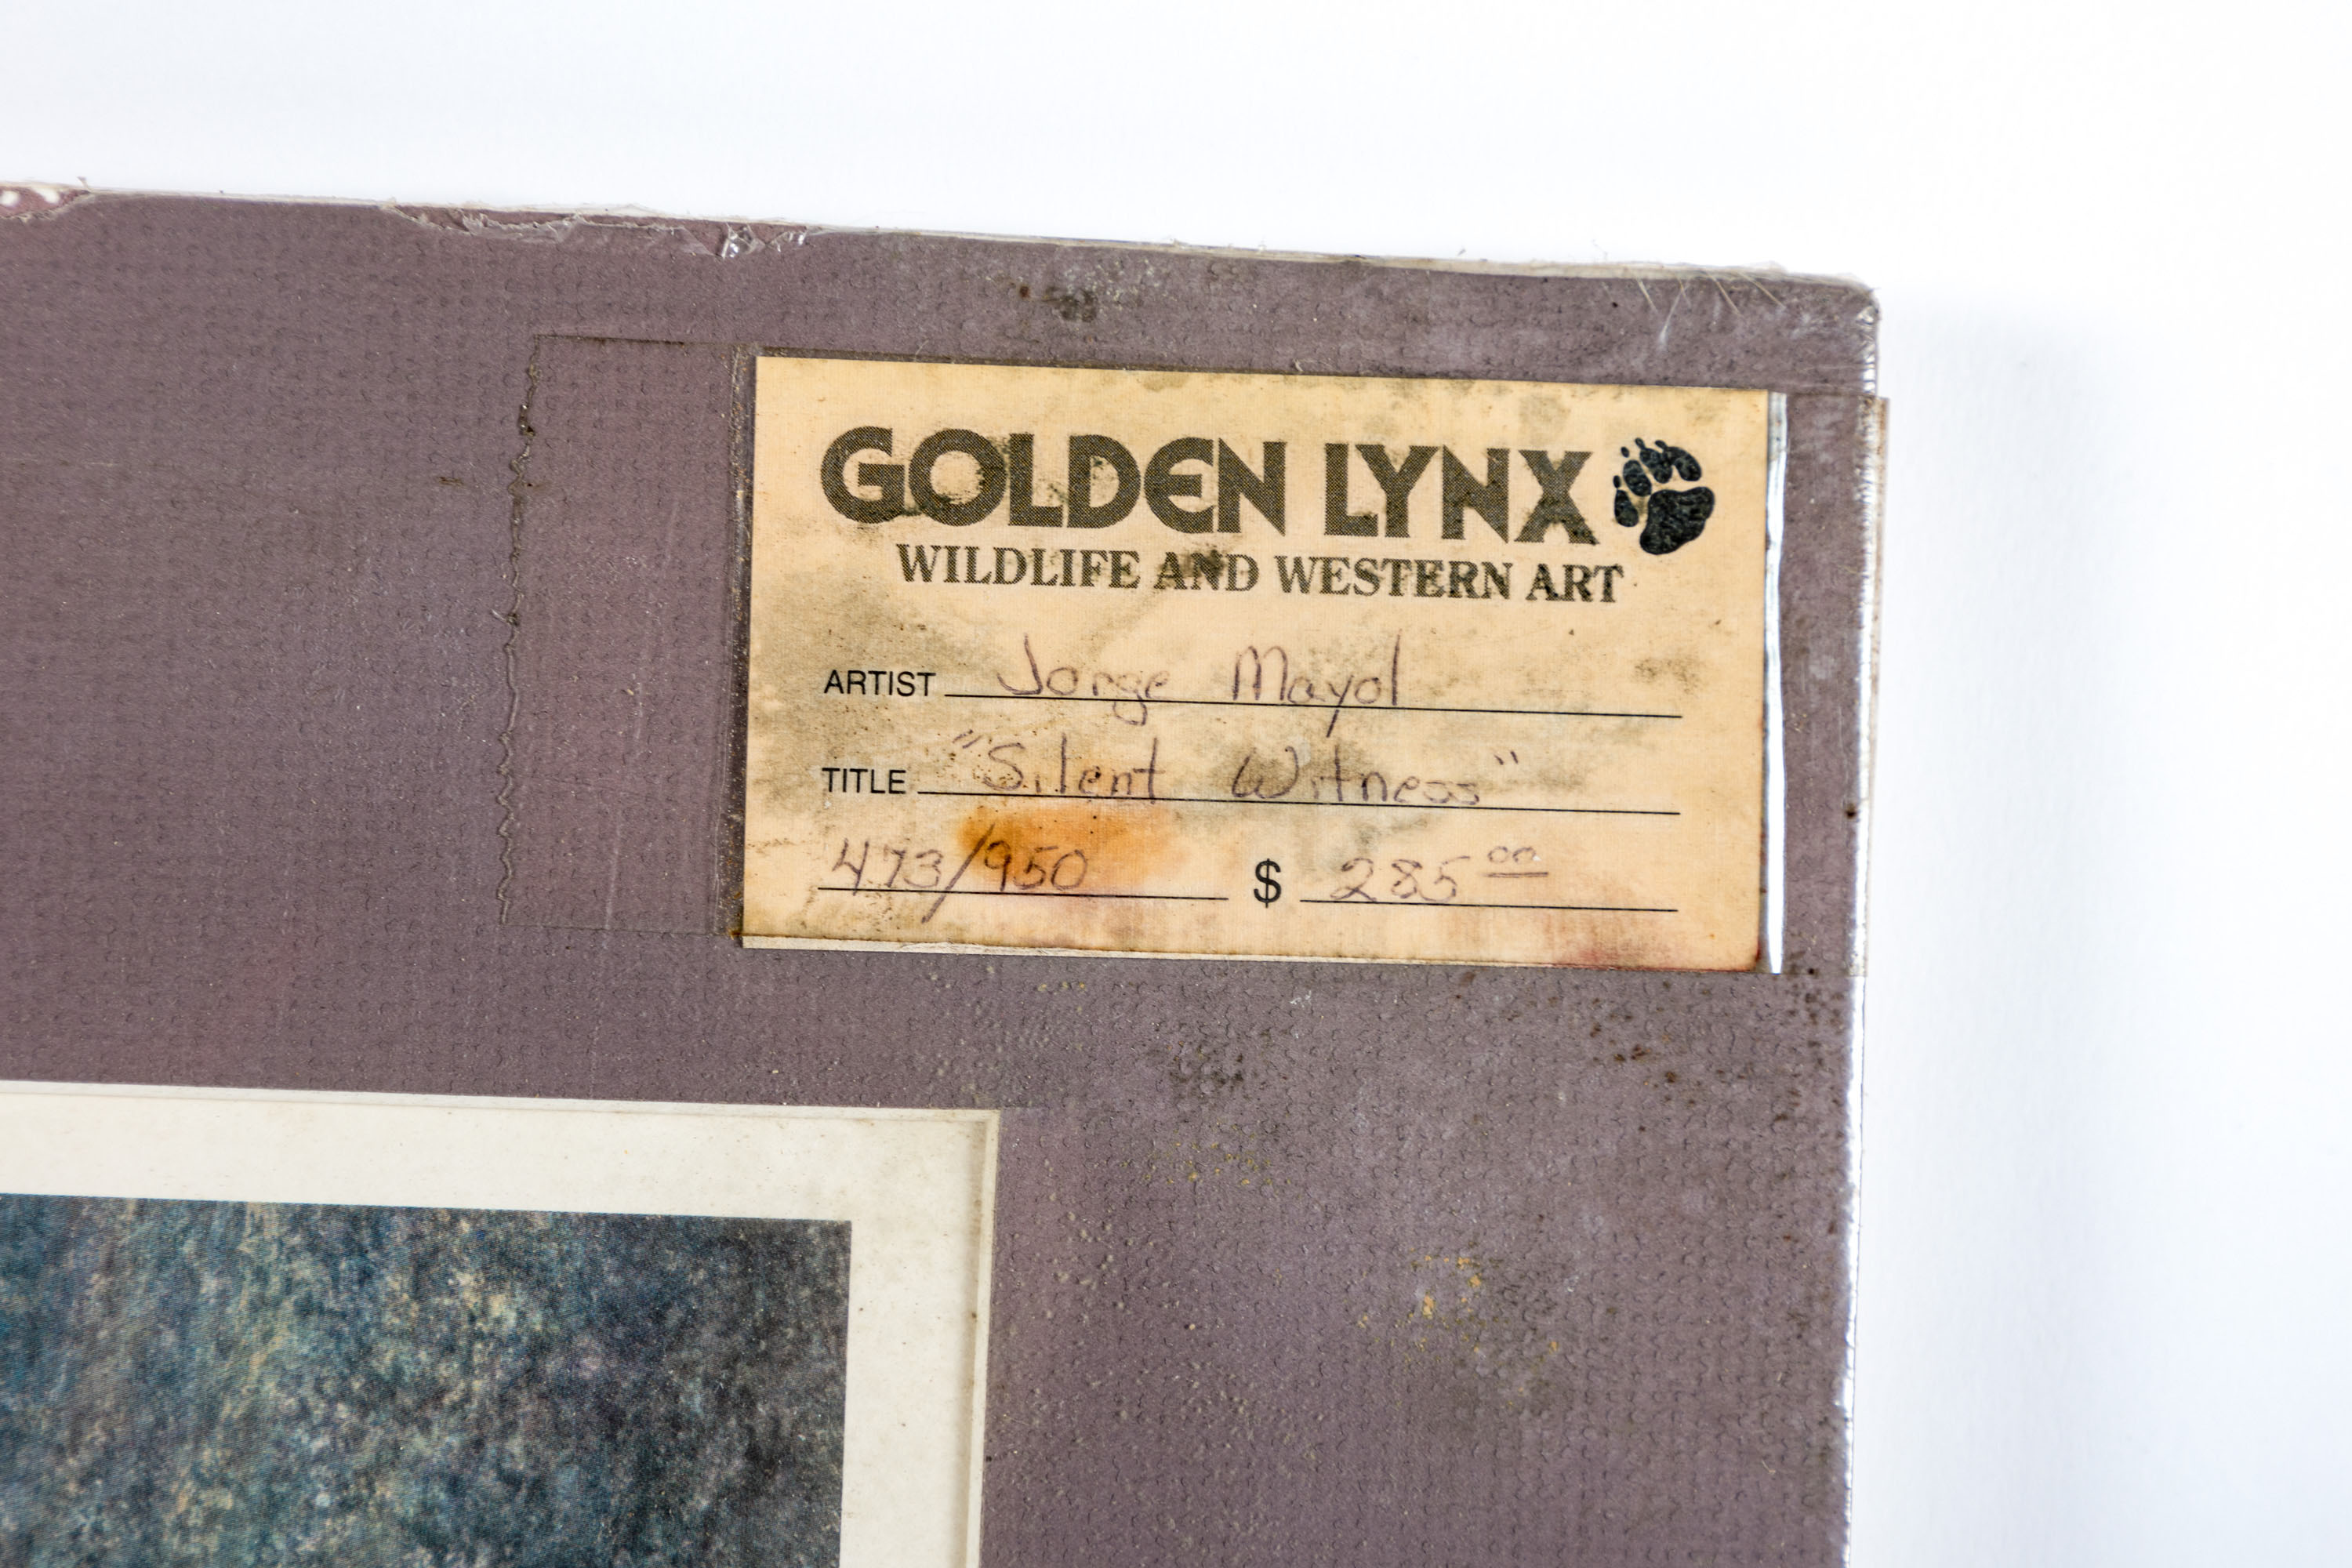 GOLDEN LYNX
WILDLIFE AND WESTERN ART
ARTIST Jorge Mayol
TITLE "Silent Witness"
473/950 $ 285 00